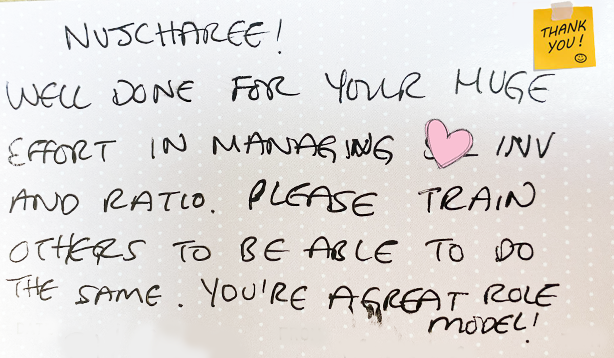 NUJCHAREE!
THANK
YOU!
WELL DONE FOR YOUR HUGE
EFFORT IN MANAGING INV
AND RATIO. PLEASE TRAIN
OTHERS TO BE ABLE TO DO
THE SAME. YOU'RE A GREAT ROLE
MODEL!